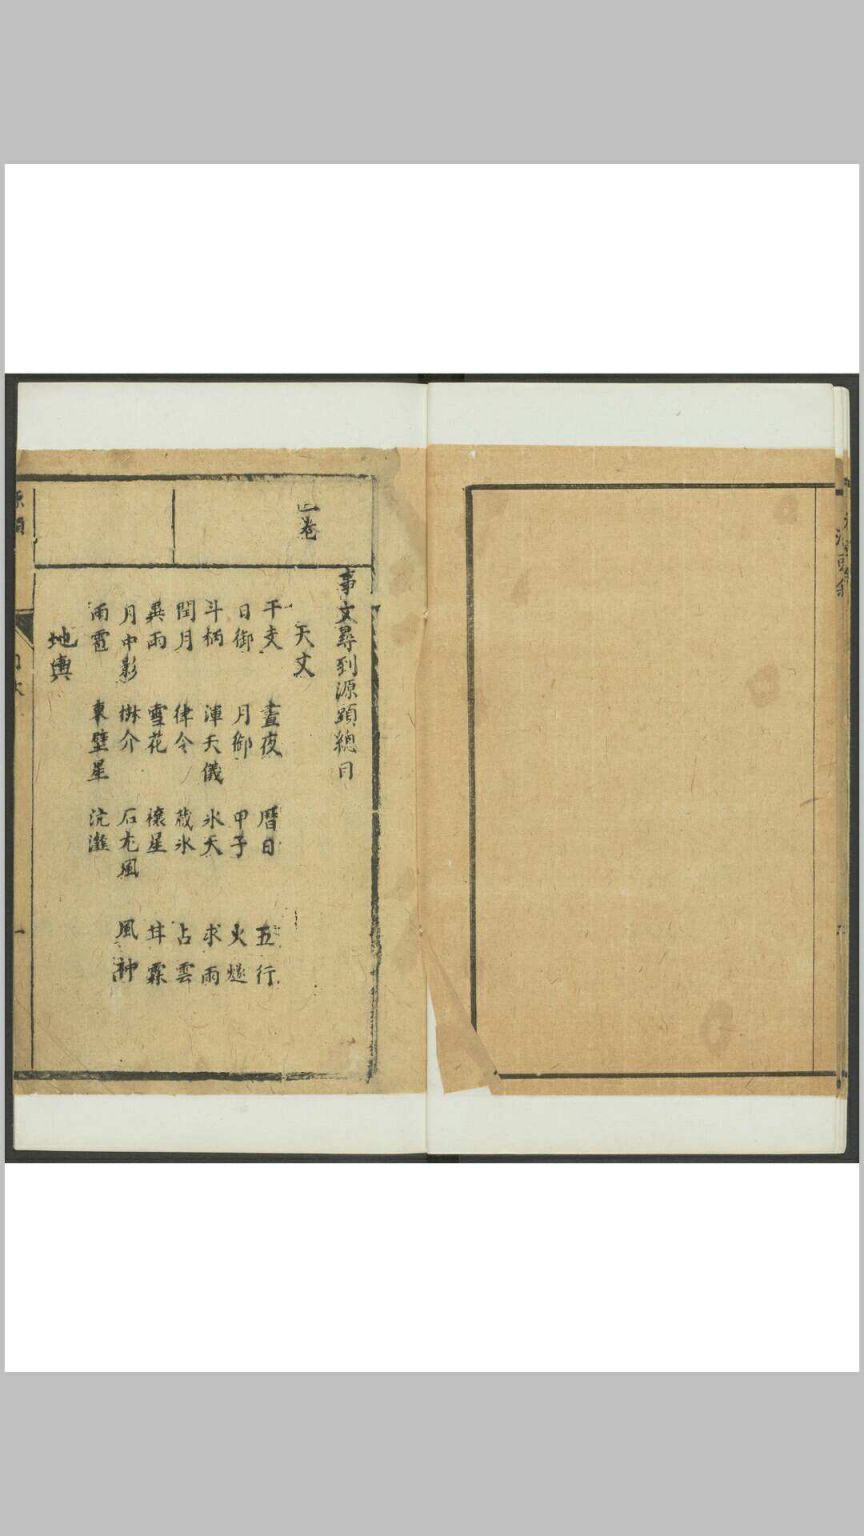 一卷
事文尋到源頭總目
天文
干支 晝夜 曆日 五行
日御 月御 甲子 火燧
斗柄 渾天儀 氷天 求雨
閏月 律令 藏氷 占雲
異雨 雪花 禳星 霖
月中影 樹介 石尤風 風神
雨雹 東壁星 沆瀣
地輿